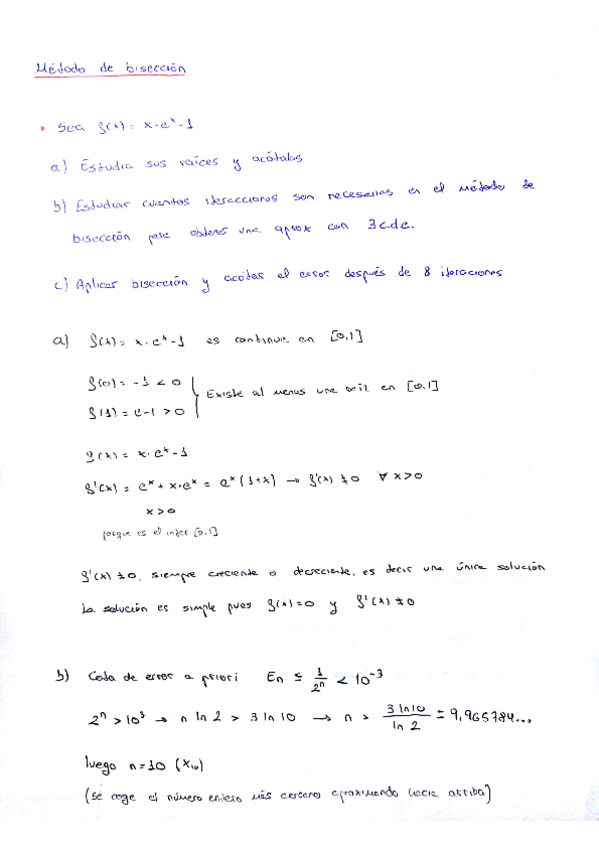 Método de bisección
• Sea f(x) = x·eˣ-1
a) Estudia sus raíces y acótalas
b) Estudiar cuantas iteracciones son necesarias en el método de
bisección para obtener una aprox con 3 c.d.c.
c) Aplicar bisección y acotar el error después de 8 iteraciones
a) f(x) = x·eˣ-1 es continua en [0,1]
f(0) = -1 < 0
f(1) = e-1 > 0
Existe al menos una raíz en [0,1]
f(x) = x·eˣ-1
f'(x) = eˣ + x·eˣ = eˣ(1+x) → f'(x) ≠ 0 ∀ x>0
x>0
porque es el inter [0,1]
f'(x) ≠ 0, siempre creciente o decreciente, es decir una única solución
La solución es simple pues f(x)=0 y f'(x) ≠ 0
b) Cota de error a priori En ≤ 1/2ⁿ < 10⁻³
2ⁿ > 10³ → n ln 2 > 3 ln 10 → n > 3 ln 10 / ln 2 = 9,965784...
luego n=10 (x₁₀)
(se coge el número entero más cercano aproximando hacia arriba)